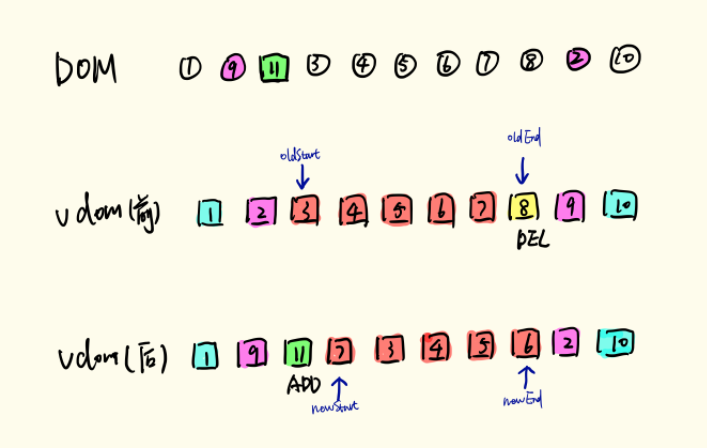 DOM 1 9 11 3 4 5 6 7 8 2 10
oldStart oldEnd
vdom(前) 1 2 3 4 5 6 7 8 9 10
DEL
vdom(后) 1 9 11 7 3 4 5 6 2 10
ADD
newStart newEnd